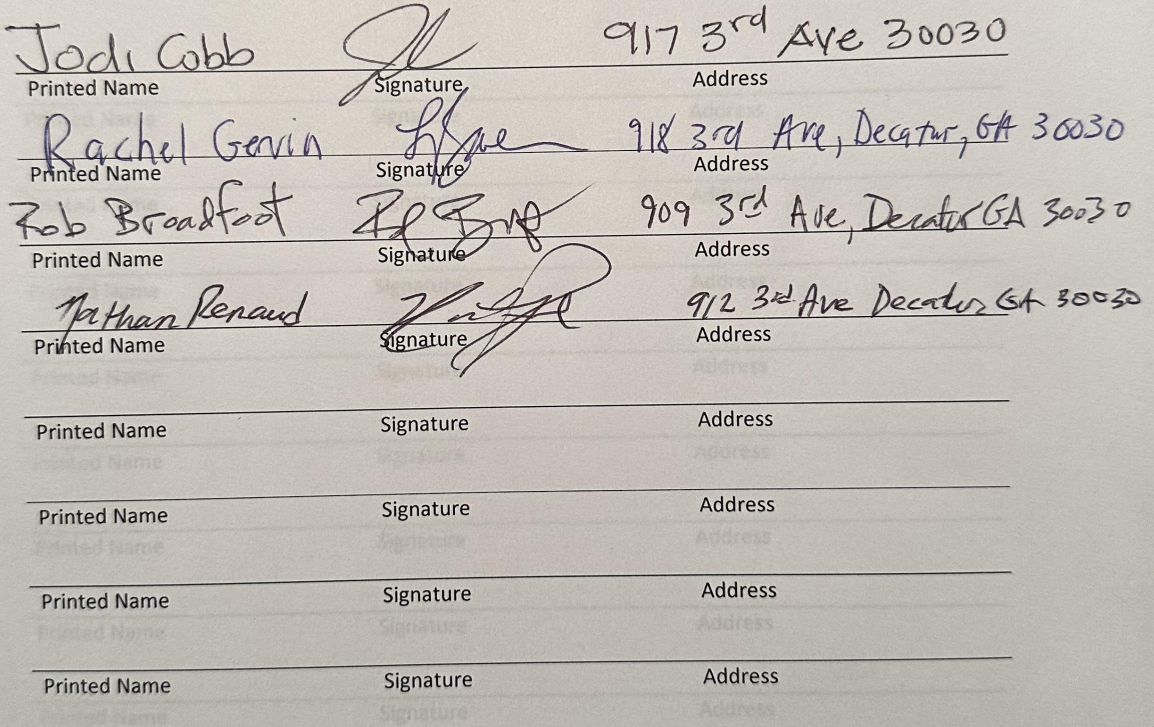 Jodi Cobb 917 3rd Ave 30030
Printed Name Signature Address
Rachel Gervin 918 3rd Ave, Decatur, GA 30030
Printed Name Signature Address
Rob Broadfoot 909 3rd Ave, Decatur GA 30030
Printed Name Signature Address
Nathan Renaud 912 3rd Ave Decatur GA 30030
Printed Name Signature Address
Printed Name Signature Address
Printed Name Signature Address
Printed Name Signature Address
Printed Name Signature Address